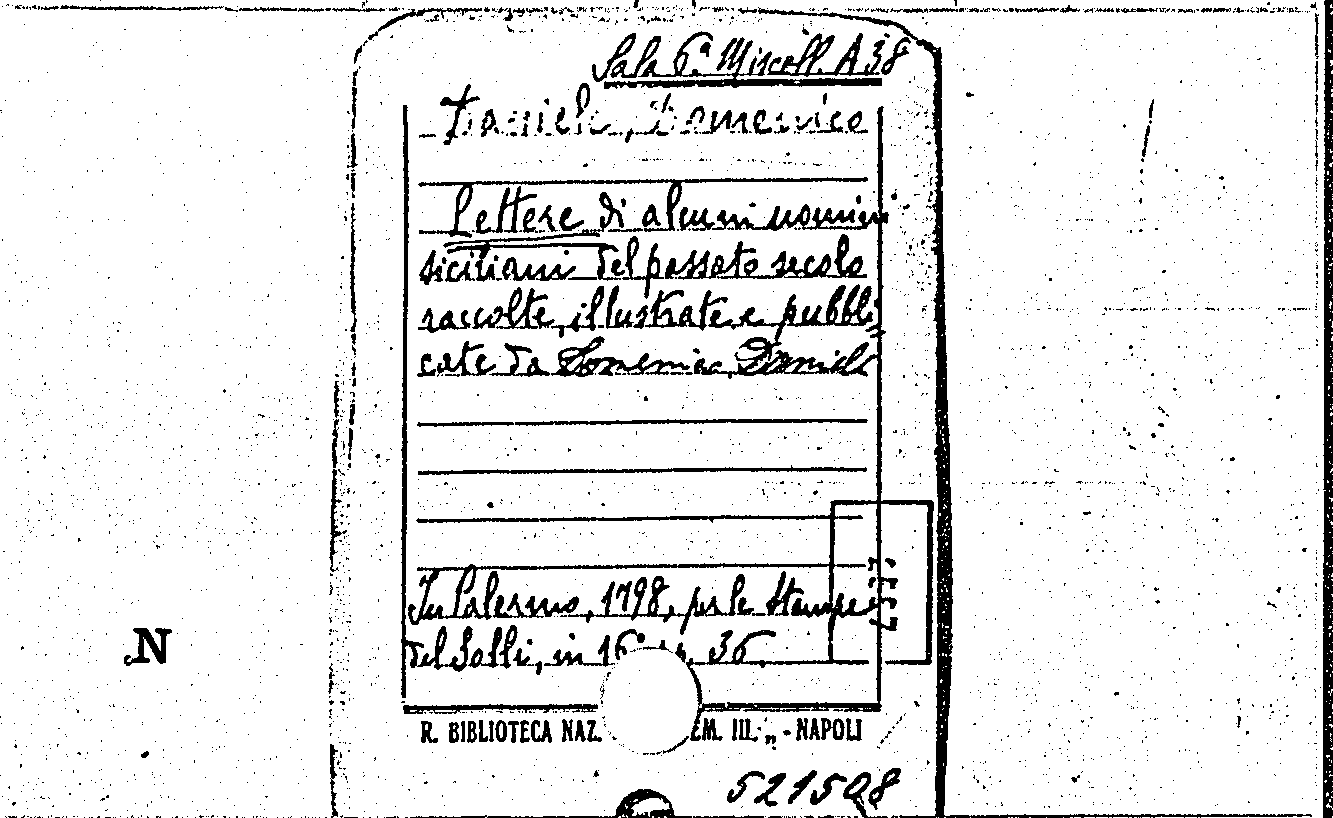 Sala 6.ª Miscell. A 38
Daniele, Domenico
Lettere di alcuni uomini
siciliani del passato secolo
raccolte, illustrate e pubbli
cate da Domenico Daniele
In Palermo, 1798, per le Stampe
del Solli, in 16° p. 36.
R. BIBLIOTECA NAZ. EM. III. „ - NAPOLI
521508
N